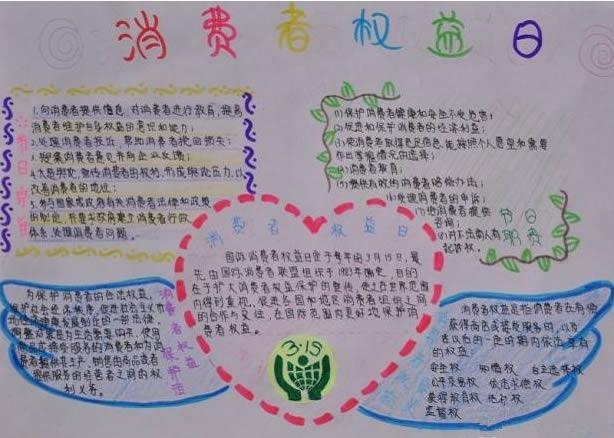 消费者权益日
1.向消费者提供信息,对消费者进行教育,提高
消费者维护自身权益的意识和能力;
2.处理消费者投诉,帮助消费者挽回损失;
3.搜集消费者意见并向企业反馈;
4.大造舆论,宣传消费者的权利,形成舆论压力,以
改善消费者的地位;
5.参与国家或政府有关消费者法律和政策
的制定,并要求政府建立消费者行政
体系,处理消费者问题。
节日宗旨
(1)保护消费者健康和安全不受危害;
(2)促进和保护消费者的经济利益;
(3)使消费者取得充足信息,能按照个人意愿和需要
作出掌握情况的选择;
(4)消费者教育;
(5)提供有效的消费者赔偿办法;
(6)处理消费者的申诉;
(7)给消费者提供
咨询;
节日
消费者权益日
国际消费者权益日定于每年的3月15日,最
先由国际消费者联盟组织于1983年确定,目的
在于扩大消费者权益保护的宣传,使之在世界范围
内得到重视,促进各国和地区消费者组织之间
的合作与交往,在国际范围内更好地保护消
费者权益。
3·15
为保护消费者的合法权益,
维护社会经济秩序,促进社会主义市
场经济健康发展制定的一部法律。
消费者为生活需要购买、使用
商品或接受服务的消费者和为消
费者提供其生产、销售的商品或者
提供服务的经营者之间的权
利义务。
消费者权益保护法
消费者权益是指消费者在有偿
获得商品或接受服务时,以及
在以后的一定时期内依法享有
的权益
安全权 知情权 自主选择权
公平交易权 依法求偿权
获得教育权 结社权
监督权